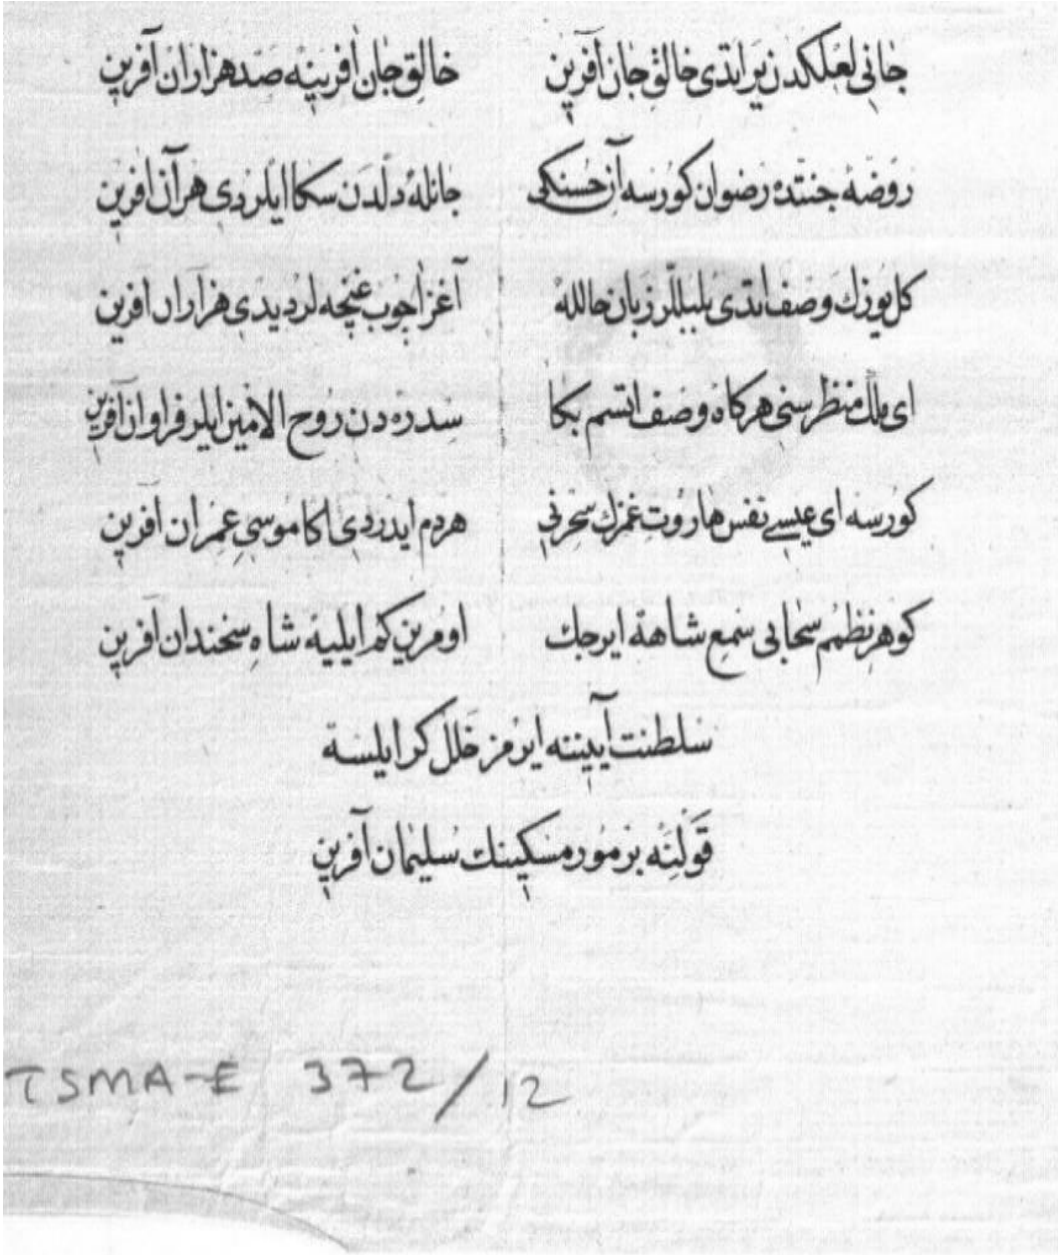 جانی لعلكدن زیر ایتدی خالق جان آفرین خالق جان آفرینه صد هزاران آفرین
روضۀ جنتده رضوان كورسه آن حسنكی جانله دلدن سكا ایلردی هر آن آفرین
كل یوزك وصف ایتدی بلبللر زبان حالله آغز اچوب غنچه لر دیدی هزاران آفرین
ای ملك منظر سنی هر كاه وصف ایتسم بكا سدره دن روح الامین ایلر فراوان آفرین
كورسه ای عیسی نفس هاروت غمزك سحرنی هردم ایدردی اكا موسی عمران آفرین
كوهر نظمم سحابی سمع شاهه ایرجك اومرین كم ایلیه شاه سخندان آفرین
سلطنت آییننه ایرمز خلل كر ایلسه
قولنه بر مور مسكینك سلیمان آفرین
TSMA-E 372/12